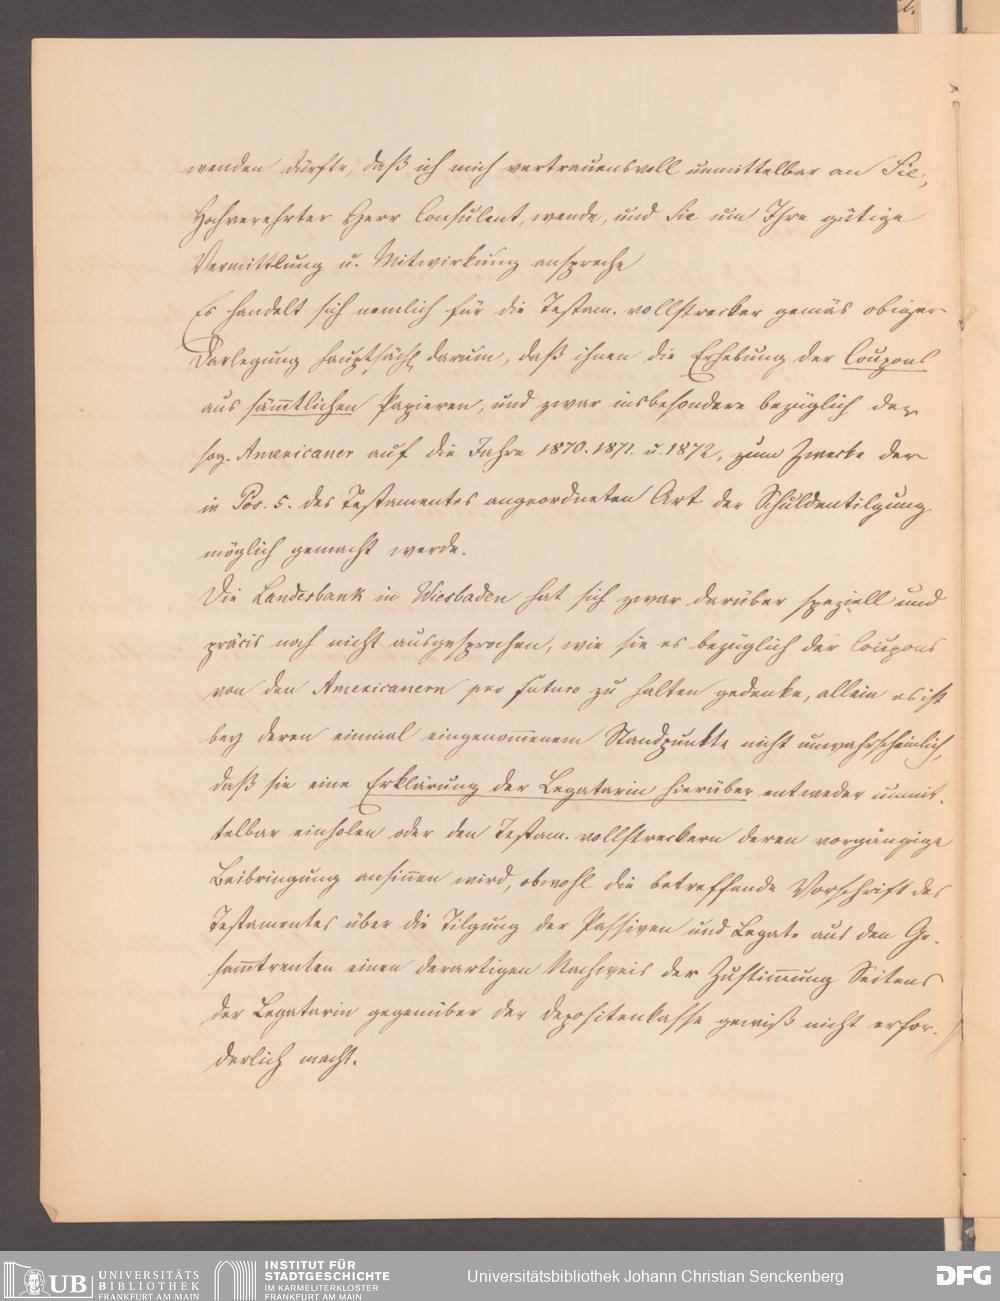 wenden dürfte, daß ich mich vertrauensvoll unmittelbar an Sie,
Hochverehrter Herr Consulent, wende, und Sie um Ihre gütige
Vermittlung u. Mitwirkung anspreche
Es handelt sich nemlich für die Testam. vollstrecker gemäs obiger
Darlegung hauptsächl. darum, daß ihnen die Erhebung der Coupons
aus sämtlichen Papieren, und zwar insbesondere bezüglich der
sog. Americaner auf die Jahre 1870. 1871. u. 1872, zum Zwecke der
in Pos. 5. des Testamentes angeordneten Art der Schuldentilgung
möglich gemacht werde.
Die Landesbank in Wiesbaden hat sich zwar darüber speziell und
präcis noch nicht ausgesprochen, wie sie es bezüglich der Coupons
von den Americanern pro futuro zu halten gedenke, allein es ist
bey deren einmal eingenommenem Standpunkte nicht unwahrscheinlich,
daß sie eine Erklärung der Legatarin hierüber entweder unmit-
telbar einholen oder den Testam. vollstreckern deren vorgängige
Beibringung ansinnen wird, obwohl die betreffende Vorschrift des
Testamentes über die Tilgung der Passiven und Legate aus den Ge-
sammtrenten einen derartigen Nachweis der Zustimmung Seitens
der Legatarin gegenüber der Depositenkasse gewiß nicht erfor-
derlich macht.
UB UNIVERSITÄTS
BIBLIOTHEK
FRANKFURT AM MAIN
INSTITUT FÜR
STADTGESCHICHTE
IM KARMELITERKLOSTER
FRANKFURT AM MAIN
Universitätsbibliothek Johann Christian Senckenberg
DFG